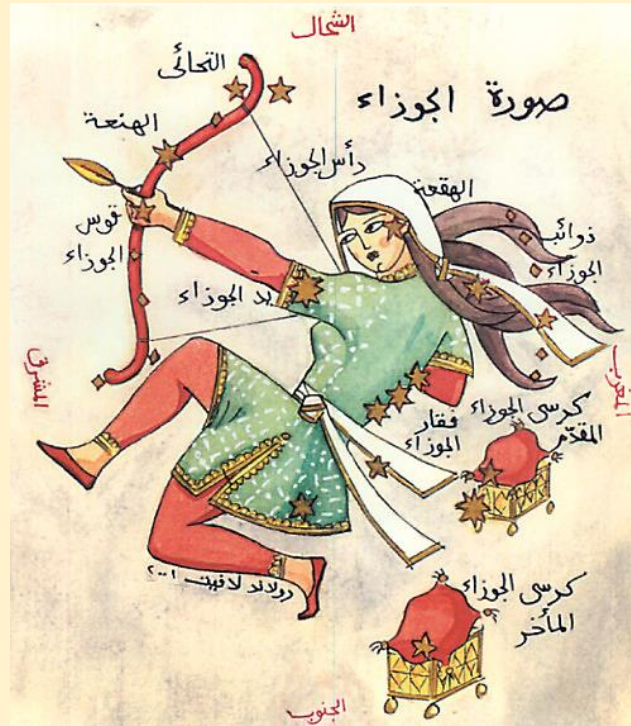 الشمال
صورة الجوزاء
التحائى
الهنعة
رأس الجوزاء
الهقعة
ذوائب
الجوزاء
قوس
الجوزاء
يد الجوزاء
المشرق
المغرب
كرسى الجوزاء
المقدّم
فقار
الجوزاء
رولاند لافيت ٢٠٠١
كرسى الجوزاء
المأخر
الجنوب